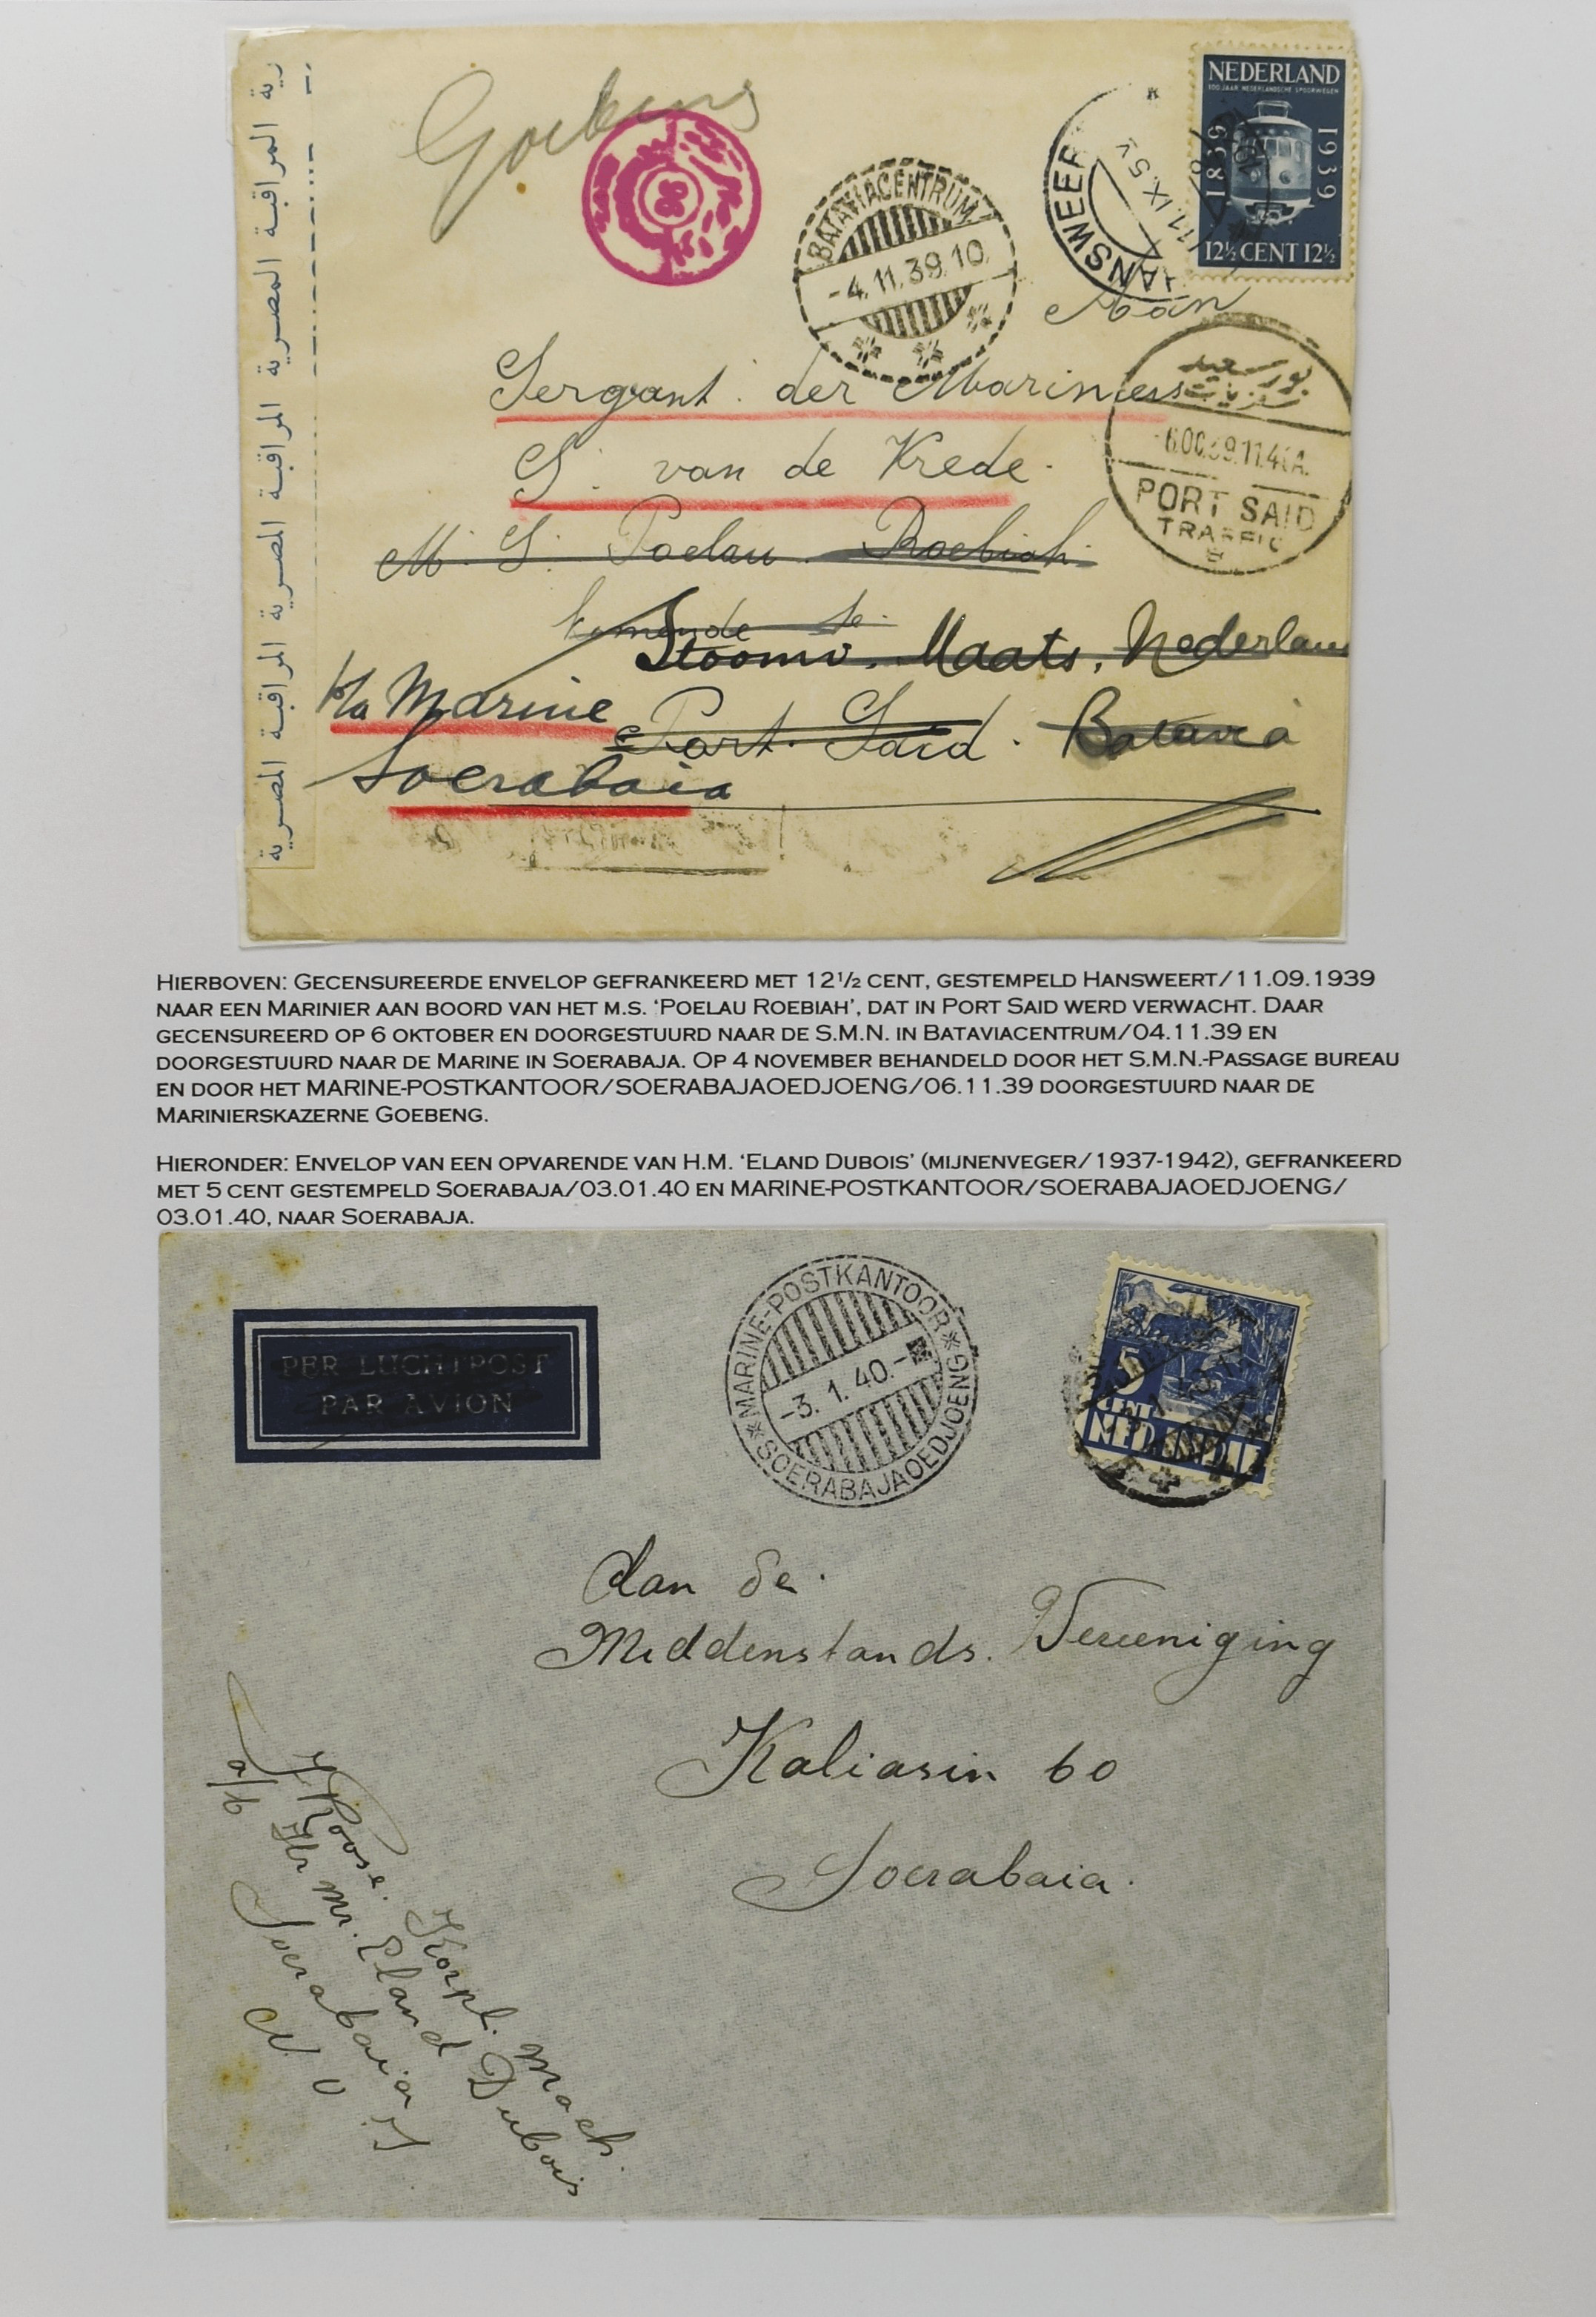 المراقبة المصرية المراقبة المصرية المراقبة المصرية المراقبة المصرية
Goebeng
NEDERLAND
100 JAAR NEDERLANDSCHE SPOORWEGEN
1839 1939
12½ CENT 12½
BATAVIACENTRUM
-4.11.39.10
ANSWEER
11.IX.5V
Aan
Sergant der Mariniers
S. van de Krede.
M. S. Poelau Roebiah.
بورسعيد
PORT SAID
TRAFFIC
Stoomv. Maats. Nederland
b/a Marine
Port. Said. Batavia
Soerabaia
HIERBOVEN: GECENSUREERDE ENVELOP GEFRANKEERD MET 12½ CENT, GESTEMPELD HANSWEERT/11.09.1939
NAAR EEN MARINIER AAN BOORD VAN HET M.S. ‘POELAU ROEBIAH’, DAT IN PORT SAID WERD VERWACHT. DAAR
GECENSUREERD OP 6 OKTOBER EN DOORGESTUURD NAAR DE S.M.N. IN BATAVIACENTRUM/04.11.39 EN
DOORGESTUURD NAAR DE MARINE IN SOERABAJA. OP 4 NOVEMBER BEHANDELD DOOR HET S.M.N.-PASSAGE BUREAU
EN DOOR HET MARINE-POSTKANTOOR/SOERABAJAOEDJOENG/06.11.39 DOORGESTUURD NAAR DE
MARINIERSKAZERNE GOEBENG.
HIERONDER: ENVELOP VAN EEN OPVARENDE VAN H.M. ‘ELAND DUBOIS’ (MIJNENVEGER/1937-1942), GEFRANKEERD
MET 5 CENT GESTEMPELD SOERABAJA/03.01.40 EN MARINE-POSTKANTOOR/SOERABAJAOEDJOENG/
03.01.40, NAAR SOERABAJA.
PER LUCHTPOST
PAR AVION
MARINE-POSTKANTOOR
-3. 1. 40.-
SOERABAJAOEDJOENG
5
CENT
NED. INDIE
Aan de.
Middenstands. Vereeniging
Kaliasin 60
Soerabaia.
J Roose. Korpl. Mach.
a/b Hr Mr. Eland Dubois
Soerabaia
N O I